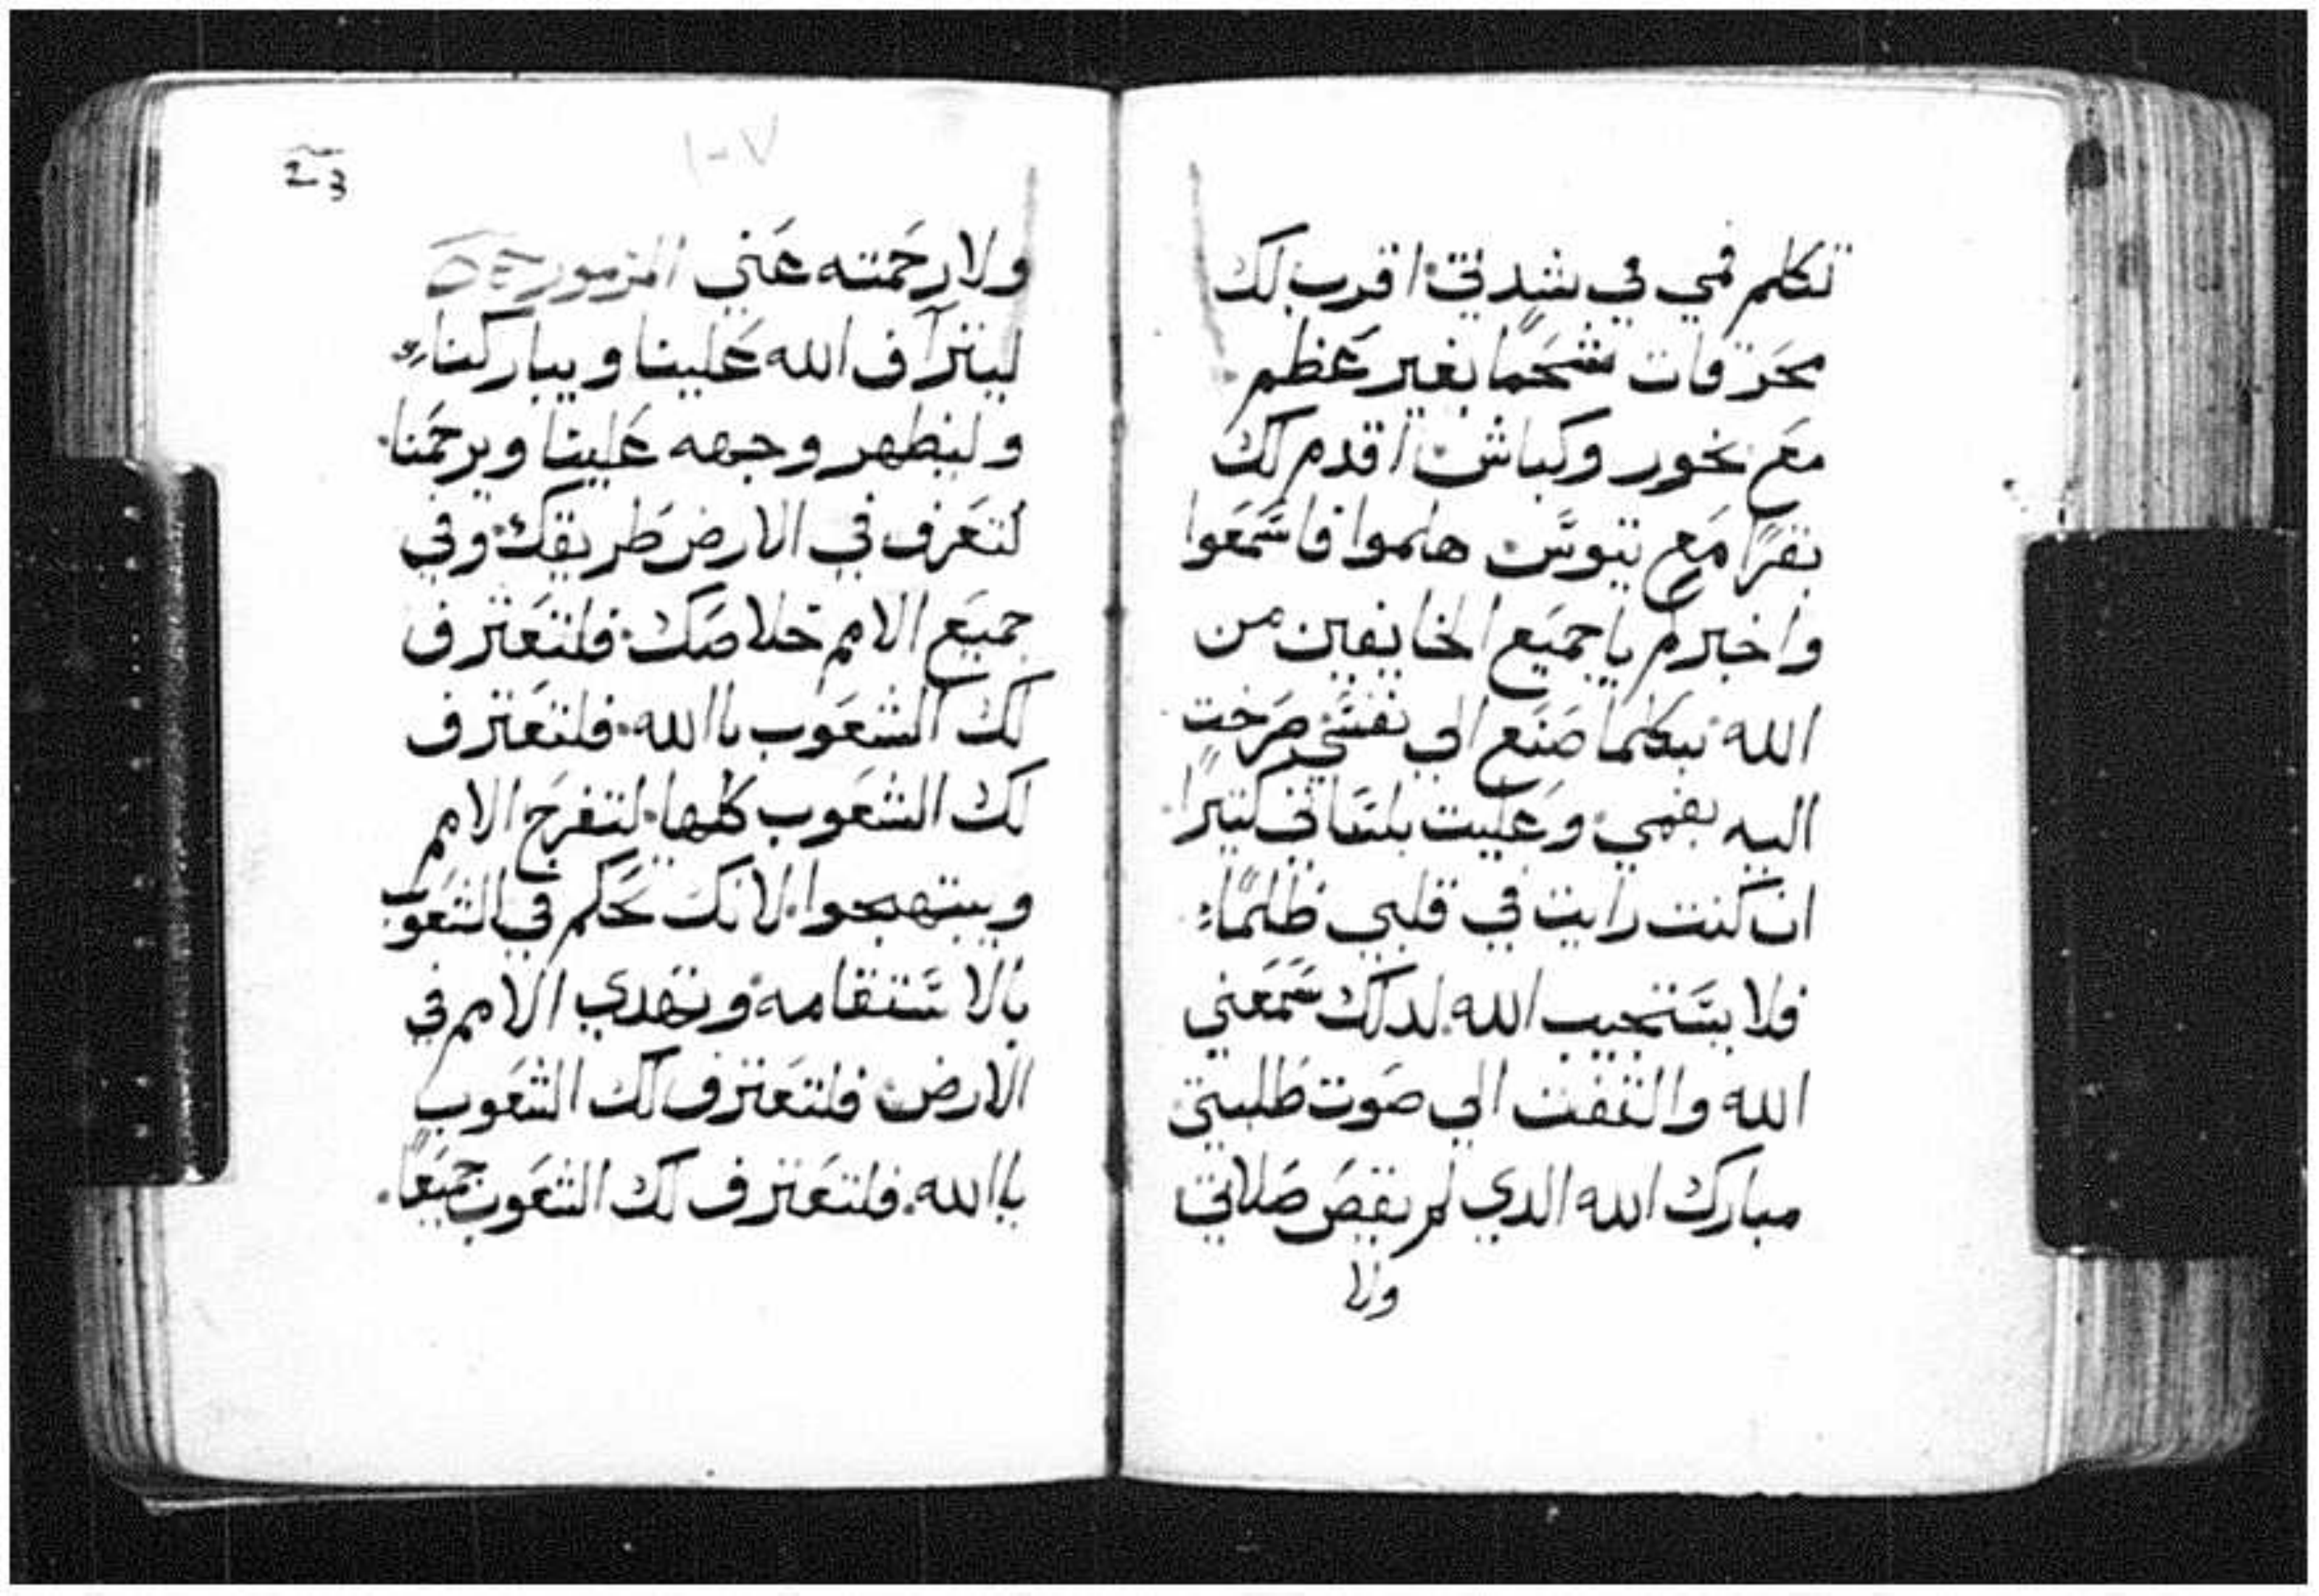 تكلم فمي في شدتي اقرب لك
محرقات شحمًا بغير عظم
مَع بخور وكباش اقدم لك
بقرًا مَع تيوس هلموا فاسمَعوا
واخبركم ياجميَع الخايفين من
الله بكلما صَنَع الي نفسي صَرخت
اليه بفمي وعَليت بلساني كثيرًا
ان كنت رايت في قلبي ظلمًا
فلا يستجيب الله لدلك سمَعني
الله والتفت الي صَوت طلبتي
مبارك الله الدي لم يقصَ صَلاتي
ولا
١٠٧
ولا رحَمته عَني المزمور
ليترآف الله عَلينا ويباركنا
وليظهر وجهه عَلينا ويرحمَنا
لتعَرف في الارض طريقك وفي
جميَع الامم خلاصَك فلتعَترف
لك الشعَوب ياالله فلتعَترف
لك الشعَوب كلها لتفرَح الامم
ويبتهجوا لانك تحَكم في الشعَوب
بالاستقامه وتهدي الامم في
الارض فلتعَترف لك الشعَوب
ياالله فلتعَترف لك الشعَوب جميَعًا